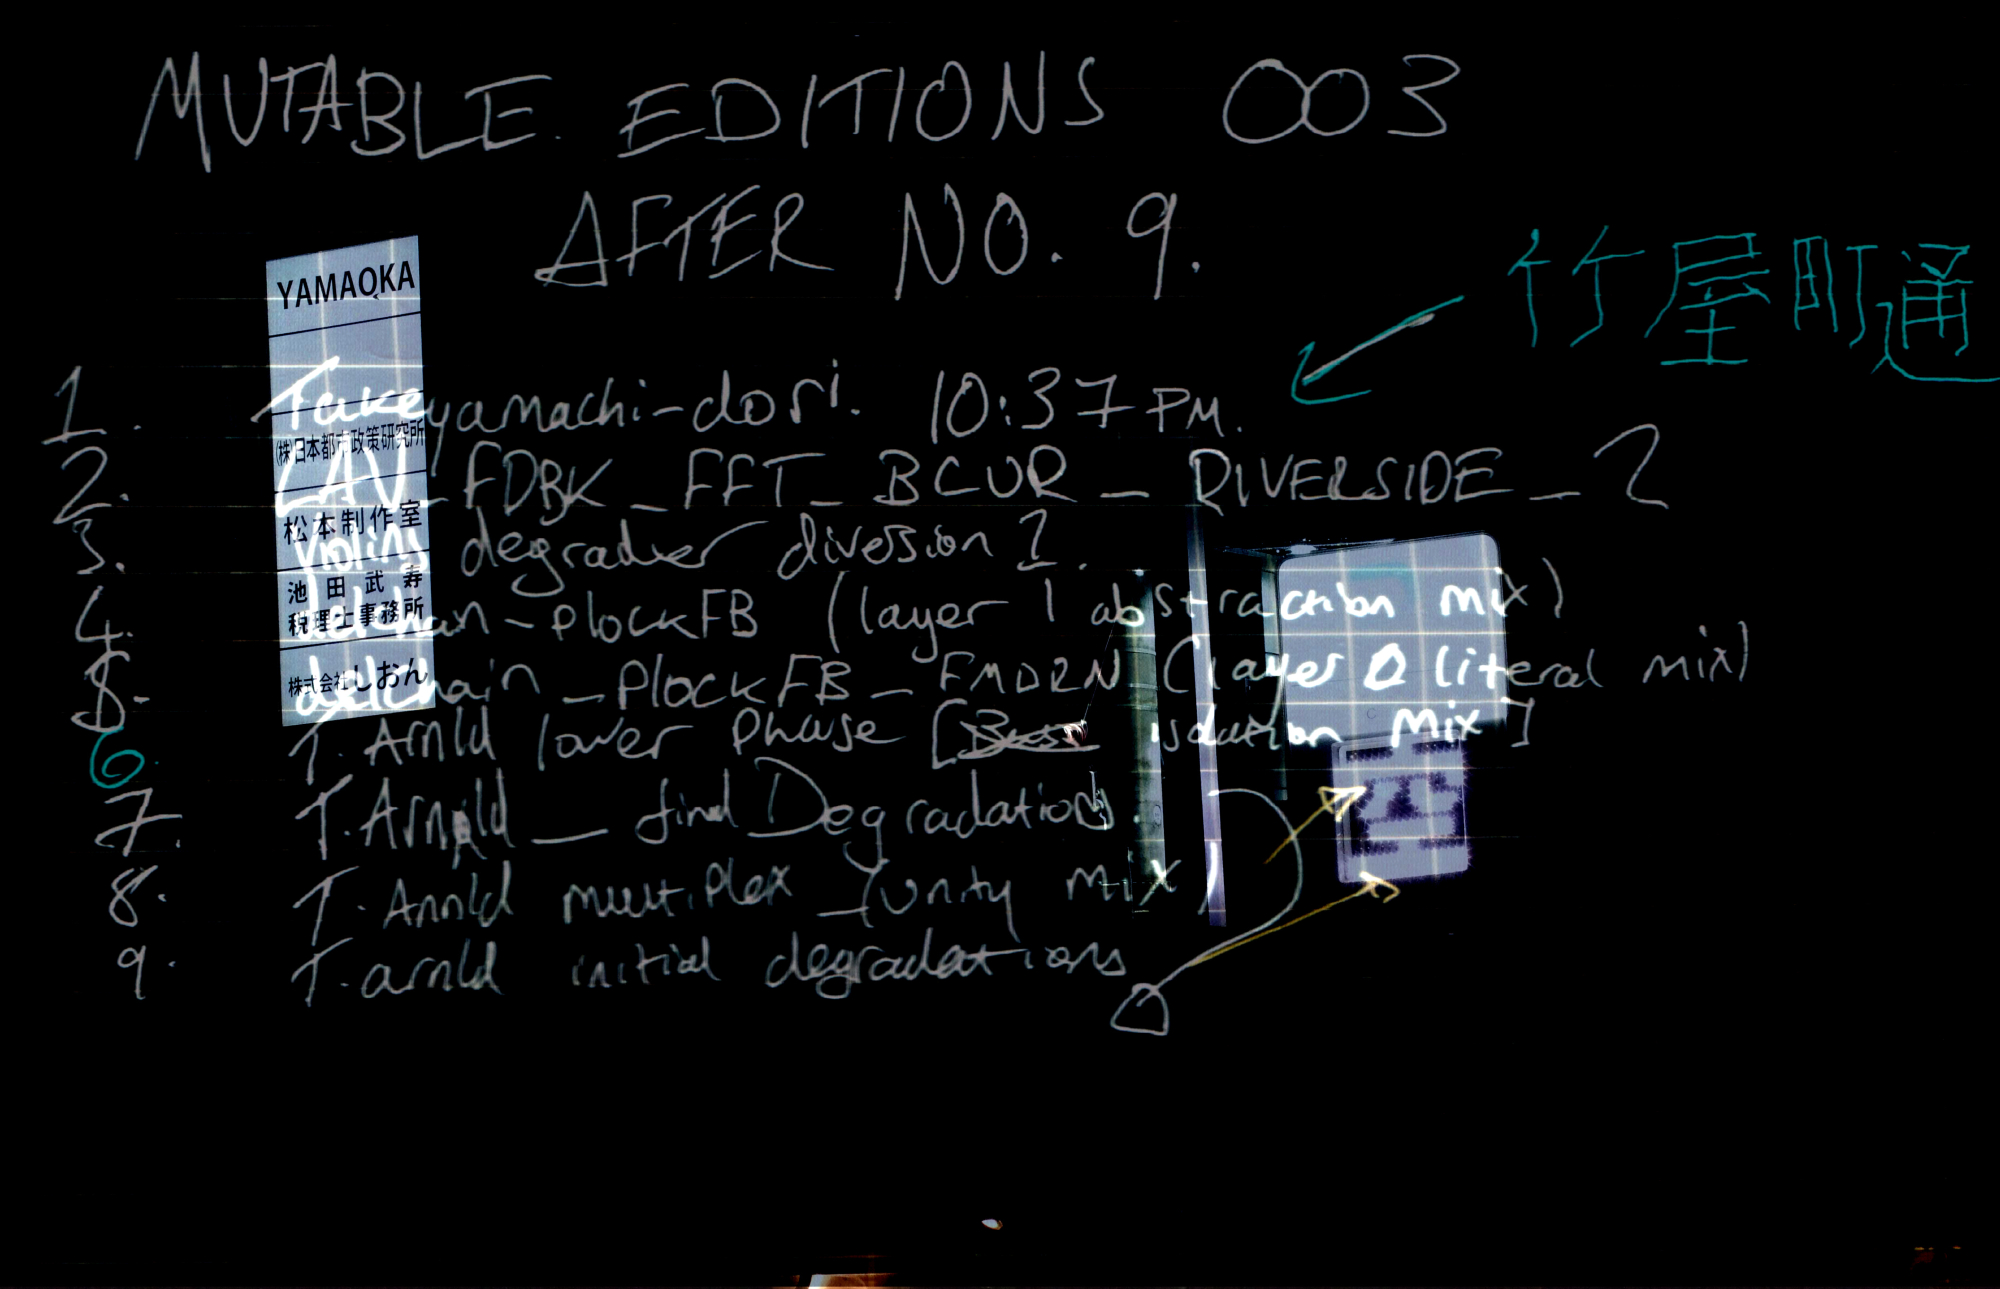 MUTABLE EDITIONS 003
AFTER NO. 9.
竹屋町通
YAMAOKA
(株)日本都市政策研究所
松本制作室
池田武寿
税理士事務所
株式会社しおん
1. Takeyamachi-dori. 10:37 PM.
2. LAV_FDBK_FFT_BCUR_RIVERSIDE_2
3. violins degrader diversion 1.
4. delchain-plockFB (layer 1 abstraction mix)
5. delchain_PlockFB_FMDRN (layer 0 literal mix)
6. T. Arnld lower Phase [ isolation Mix]
7. T. Arnld_final Degradations
8. T. Arnld multiplex_(unity mix)
9. T. arnld initial degradations